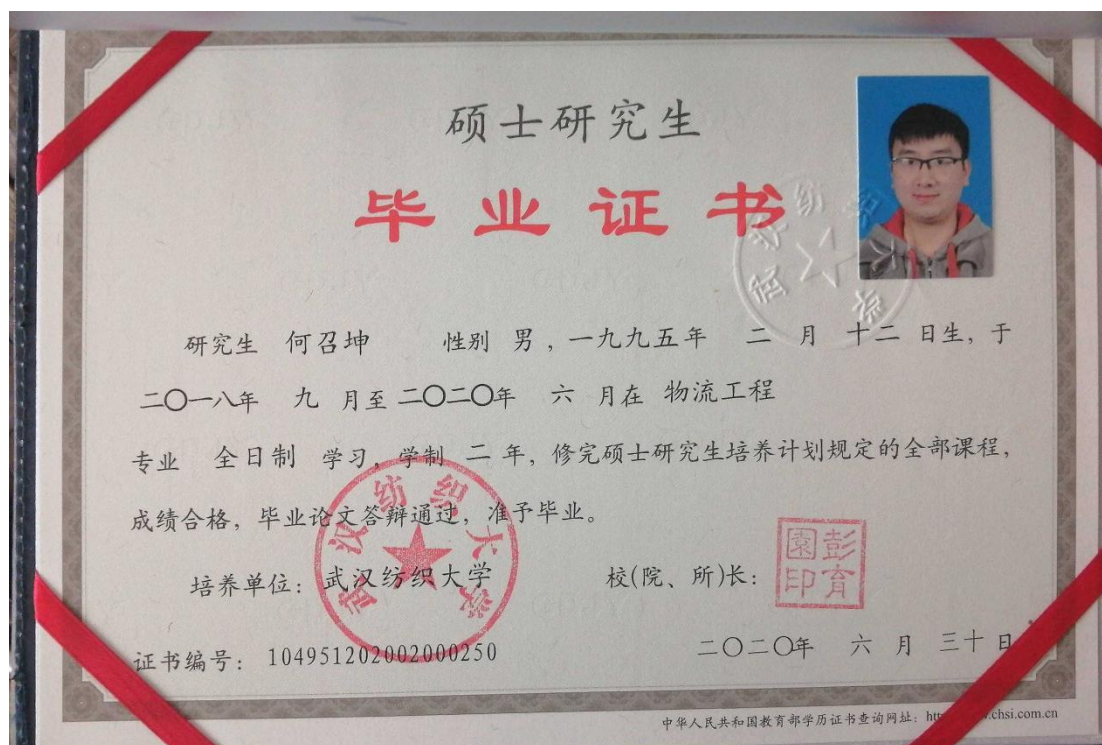 硕士研究生
毕业证书
研究生 何召坤 性别 男，一九九五年 二 月 十二 日生，于
二〇一八年 九 月至 二〇二〇年 六 月在 物流工程
专业 全日制 学习，学制 二 年，修完硕士研究生培养计划规定的全部课程，
成绩合格，毕业论文答辩通过，准予毕业。
武汉纺织大学
培养单位：武汉纺织大学 校(院、所)长：
彭育园印
证书编号：104951202002000250 二〇二〇年 六 月 三十 日
中华人民共和国教育部学历证书查询网址：htt .chsi.com.cn